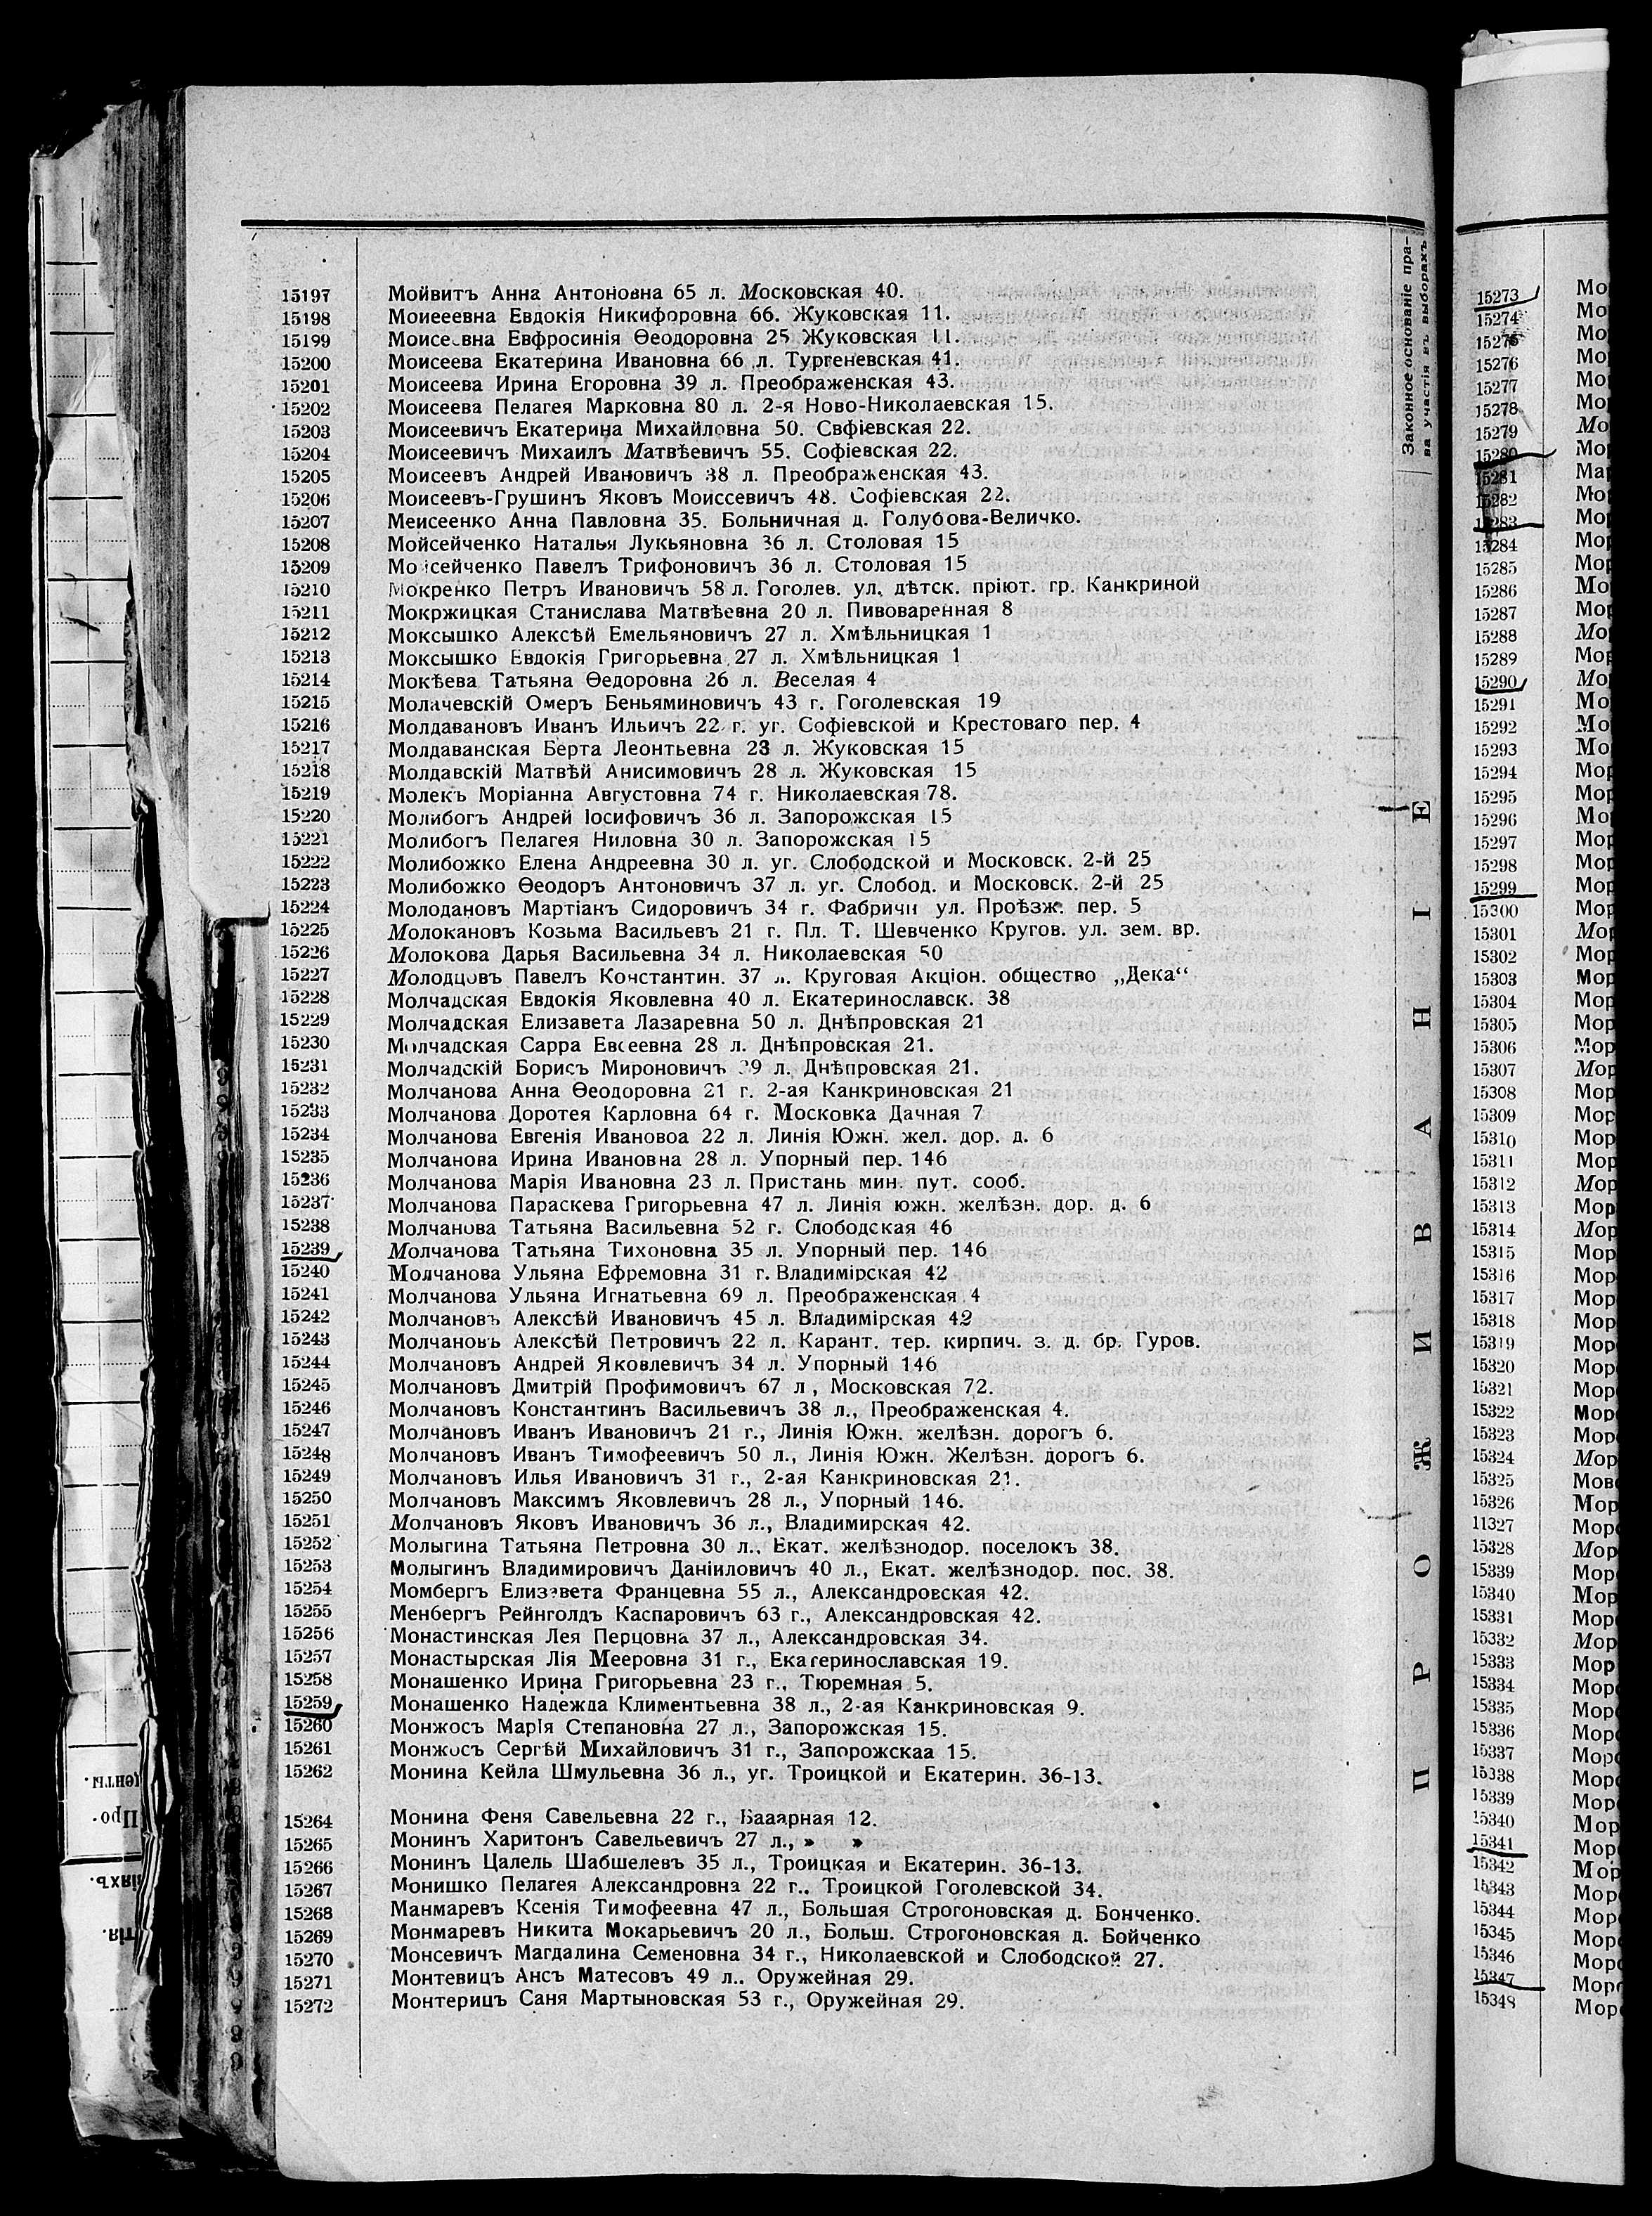 Законное основаніе пра-
ва участія въ выборахъ
15197 Мойвитъ Анна Антоновна 65 л. Московская 40.
15198 Моиееевна Евдокія Никифоровна 66. Жуковская 11.
15199 Евфросинія Ѳеодоровна 25 Жуковская 11.
15200 Моисеева Екатерина Ивановна 66 л. Тургеневская 41.
15201 Моисеева Ирина Егоровна 39 л. Преображенская 43.
15202 Моисеева Пелагея Марковна 80 л. 2-я Ново-Николаевская 15.
15203 Моисеевичъ Екатерина Михайловна 50. Свфіевская 22.
15204 Моисеевичъ Михаилъ Матвѣевичъ 55. Софіевская 22.
15205 Моисеевъ Андрей Ивановичъ 38 л. Преображенская 43.
15206 Моисеевъ-Грушинъ Яковъ Моиссевичъ 48. Софіевская 22.
15207 Меисеенко Анна Павловна 35. Больничная д. Голубова-Величко.
15208 Мойсейченко Наталья Лукьяновна 36 л. Столовая 15
15209 Мойсейченко Павелъ Трифоновичъ 36 л. Столовая 15
15210 Мокренко Петръ Ивановичъ 58 л. Гоголев. ул. дѣтск. пріют. гр. Канкриной
15211 Мокржицкая Станислава Матвѣевна 20 л. Пивоваренная 8
15212 Моксышко Алексѣй Емельяновичъ 27 л. Хмѣльницкая 1
15213 Моксышко Евдокія Григорьевна 27 л. Хмѣльницкая 1
15214 Мокѣева Татьяна Ѳедоровна 26 л. Веселая 4
15215 Молачевскій Омеръ Беньяминовичъ 43 г. Гоголевская 19
15216 Молдавановъ Иванъ Ильичъ 22 г. уг. Софіевской и Крестоваго пер. 4
15217 Молдаванская Берта Леонтьевна 23 л. Жуковская 15
15218 Молдавскій Матвѣй Анисимовичъ 28 л. Жуковская 15
15219 Молекъ Моріанна Августовна 74 г. Николаевская 78.
15220 Молибогъ Андрей Іосифовичъ 36 л. Запорожская 15
15221 Молибогъ Пелагея Ниловна 30 л. Запорожская 15
15222 Молибожко Елена Андреевна 30 л. уг. Слободской и Московск. 2-й 25
15223 Молибожко Ѳеодоръ Антоновичъ 37 л. уг. Слобод. и Московск. 2-й 25
15224 Молодановъ Мартіанъ Сидоровичъ 34 г. Фабричн ул. Проѣзж. пер. 5
15225 Молокановъ Козьма Васильевъ 21 г. Пл. Т. Шевченко Кругов. ул. зем. вр.
15226 Молокова Дарья Васильевна 34 л. Николаевская 50
15227 Молодцовъ Павелъ Константин. 37 л. Круговая Акціон. общество „Дека“
15228 Молчадская Евдокія Яковлевна 40 л. Екатеринославск. 38
15229 Молчадская Елизавета Лазаревна 50 л. Днѣпровская 21
15230 Молчадская Сарра Евсеевна 28 л. Днѣпровская 21.
15231 Молчадскій Борисъ Мироновичъ 29 л. Днѣпровская 21.
15232 Молчанова Анна Ѳеодоровна 21 г. 2-ая Канкриновская 21
15233 Молчанова Доротея Карловна 64 г. Московка Дачная 7
15234 Молчанова Евгенія Ивановоа 22 л. Линія Южн. жел. дор. д. 6
15235 Молчанова Ирина Ивановна 28 л. Упорный пер. 146
15236 Молчанова Марія Ивановна 23 л. Пристань мин. пут. сооб.
15237 Молчанова Параскева Григорьевна 47 л. Линія южн. желѣзн. дор. д. 6
15238 Молчанова Татьяна Васильевна 52 г. Слободская 46
15239 Молчанова Татьяна Тихоновна 35 л. Упорный пер. 146
15240 Молчанова Ульяна Ефремовна 31 г. Владимірская 42
15241 Молчанова Ульяна Игнатьевна 69 л. Преображенская 4
15242 Молчановъ Алексѣй Ивановичъ 45 л. Владимірская 42
15243 Молчановъ Алексѣй Петровичъ 22 л. Карант. тер. кирпич. з. д. бр. Гуров.
15244 Молчановъ Андрей Яковлевичъ 34 л. Упорный 146
15245 Молчановъ Дмитрій Профимовичъ 67 л, Московская 72.
15246 Молчановъ Константинъ Васильевичъ 38 л., Преображенская 4.
15247 Молчановъ Иванъ Ивановичъ 21 г., Линія Южн. желѣзн. дорогъ 6.
15248 Молчановъ Иванъ Тимофеевичъ 50 л., Линія Южн. Желѣзн. дорогъ 6.
15249 Молчановъ Илья Ивановичъ 31 г., 2-ая Канкриновская 21.
15250 Молчановъ Максимъ Яковлевичъ 28 л., Упорный 146.
15251 Молчановъ Яковъ Ивановичъ 36 л., Владимирская 42.
15252 Молыгина Татьяна Петровна 30 л., Екат. желѣзнодор. поселокъ 38.
15253 Молыгинъ Владимировичъ Даніиловичъ 40 л., Екат. желѣзнодор. пос. 38.
15254 Момбергъ Елизавета Францевна 55 л., Александровская 42.
15255 Менбергъ Рейнголдъ Каспаровичъ 63 г., Александровская 42.
15256 Монастинская Лея Перцовна 37 л., Александровская 34.
15257 Монастырская Лія Мееровна 31 г., Екатеринославская 19.
15258 Монашенко Ирина Григорьевна 23 г., Тюремная 5.
15259 Монашенко Надежда Климентьевна 38 л., 2-ая Канкриновская 9.
15260 Монжосъ Марія Степановна 27 л., Запорожская 15.
15261 Монжосъ Сергѣй Михайловичъ 31 г., Запорожскаа 15.
15262 Монина Кейла Шмульевна 36 л., уг. Троицкой и Екатерин. 36-13.
15264 Монина Феня Савельевна 22 г., Бааарная 12.
15265 Монинъ Харитонъ Савельевичъ 27 л., » »
15266 Монинъ Цалель Шабшелевъ 35 л., Троицкая и Екатерин. 36-13.
15267 Монишко Пелагея Александровна 22 г.. Троицкой Гоголевской 34.
15268 Манмаревъ Ксенія Тимофеевна 47 л., Большая Строгоновская д. Бонченко.
15269 Монмаревъ Никита Мокарьевичъ 20 л., Больш. Строгоновская д. Бойченко
15270 Монсевичъ Магдалина Семеновна 34 г., Николаевской и Слободской 27.
15271 Монтевицъ Ансъ Матесовъ 49 л.. Оружейная 29.
15272 Монтерицъ Саня Мартыновская 53 г., Оружейная 29.
ПРОЖИВАНІЕ
15273
15274
15276
15277
15278
15279
15280
15281
15282
15283
15284
15285
15286
15287
15288
15289
15290
15291
15292
15293
15294
15295
15296
15297
15298
15299
15300
15301
15302
15303
15304
15305
15306
15307
15308
15309
15310
15311
15312
15313
15314
15315
15316
15317
15318
15319
15320
15321
15322
15323
15324
15325
15326
11327
15328
15339
15340
15331
15332
15333
15334
15335
15336
15337
15338
15339
15340
15341
15342
15343
15344
15345
15346
15347
15348